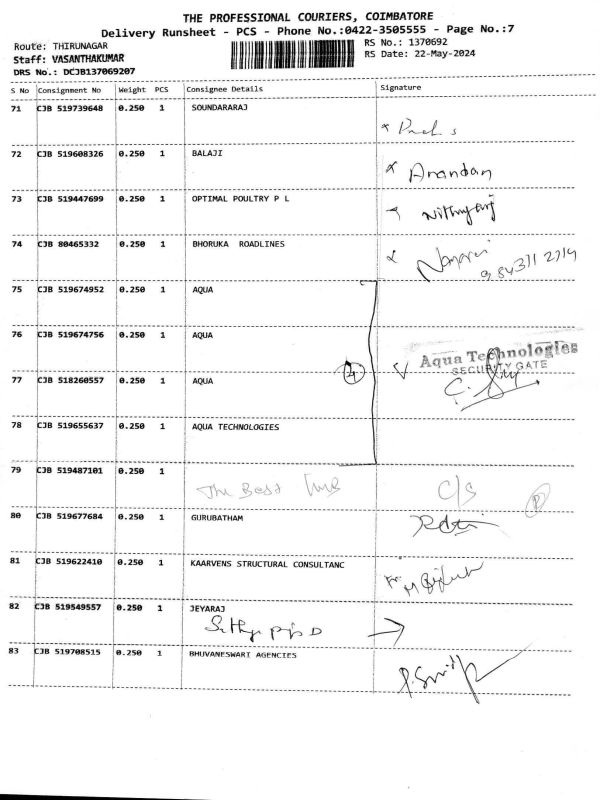 THE PROFESSIONAL COURIERS, COIMBATORE
Delivery Runsheet - PCS - Phone No.:0422-3505555 - Page No.:7
Route: THIRUNAGAR RS No.: 1370692
Staff: VASANTHAKUMAR RS Date: 22-May-2024
DRS No.: DCJB137069207
S No Consignment No Weight PCS Consignee Details Signature
71 CJB 519739648 0.250 1 SOUNDARARAJ
72 CJB 519608326 0.250 1 BALAJI
Anandan
73 CJB 519447699 0.250 1 OPTIMAL POULTRY P L
74 CJB 80465332 0.250 1 BHORUKA ROADLINES
9843112714
75 CJB 519674952 0.250 1 AQUA
76 CJB 519674756 0.250 1 AQUA
Aqua Technologies
SECURITY GATE
77 CJB 518260557 0.250 1 AQUA
4
78 CJB 519655637 0.250 1 AQUA TECHNOLOGIES
79 CJB 519487101 0.250 1
The Best C/S P
80 CJB 519677684 0.250 1 GURUBATHAM
81 CJB 519622410 0.250 1 KAARVENS STRUCTURAL CONSULTANC
82 CJB 519549557 0.250 1 JEYARAJ
83 CJB 519708515 0.250 1 BHUVANESWARI AGENCIES